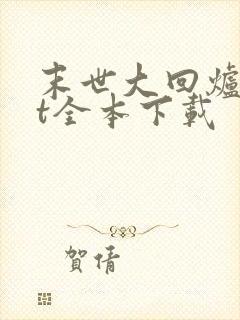 末世大回爐
t全本下載
賀倩